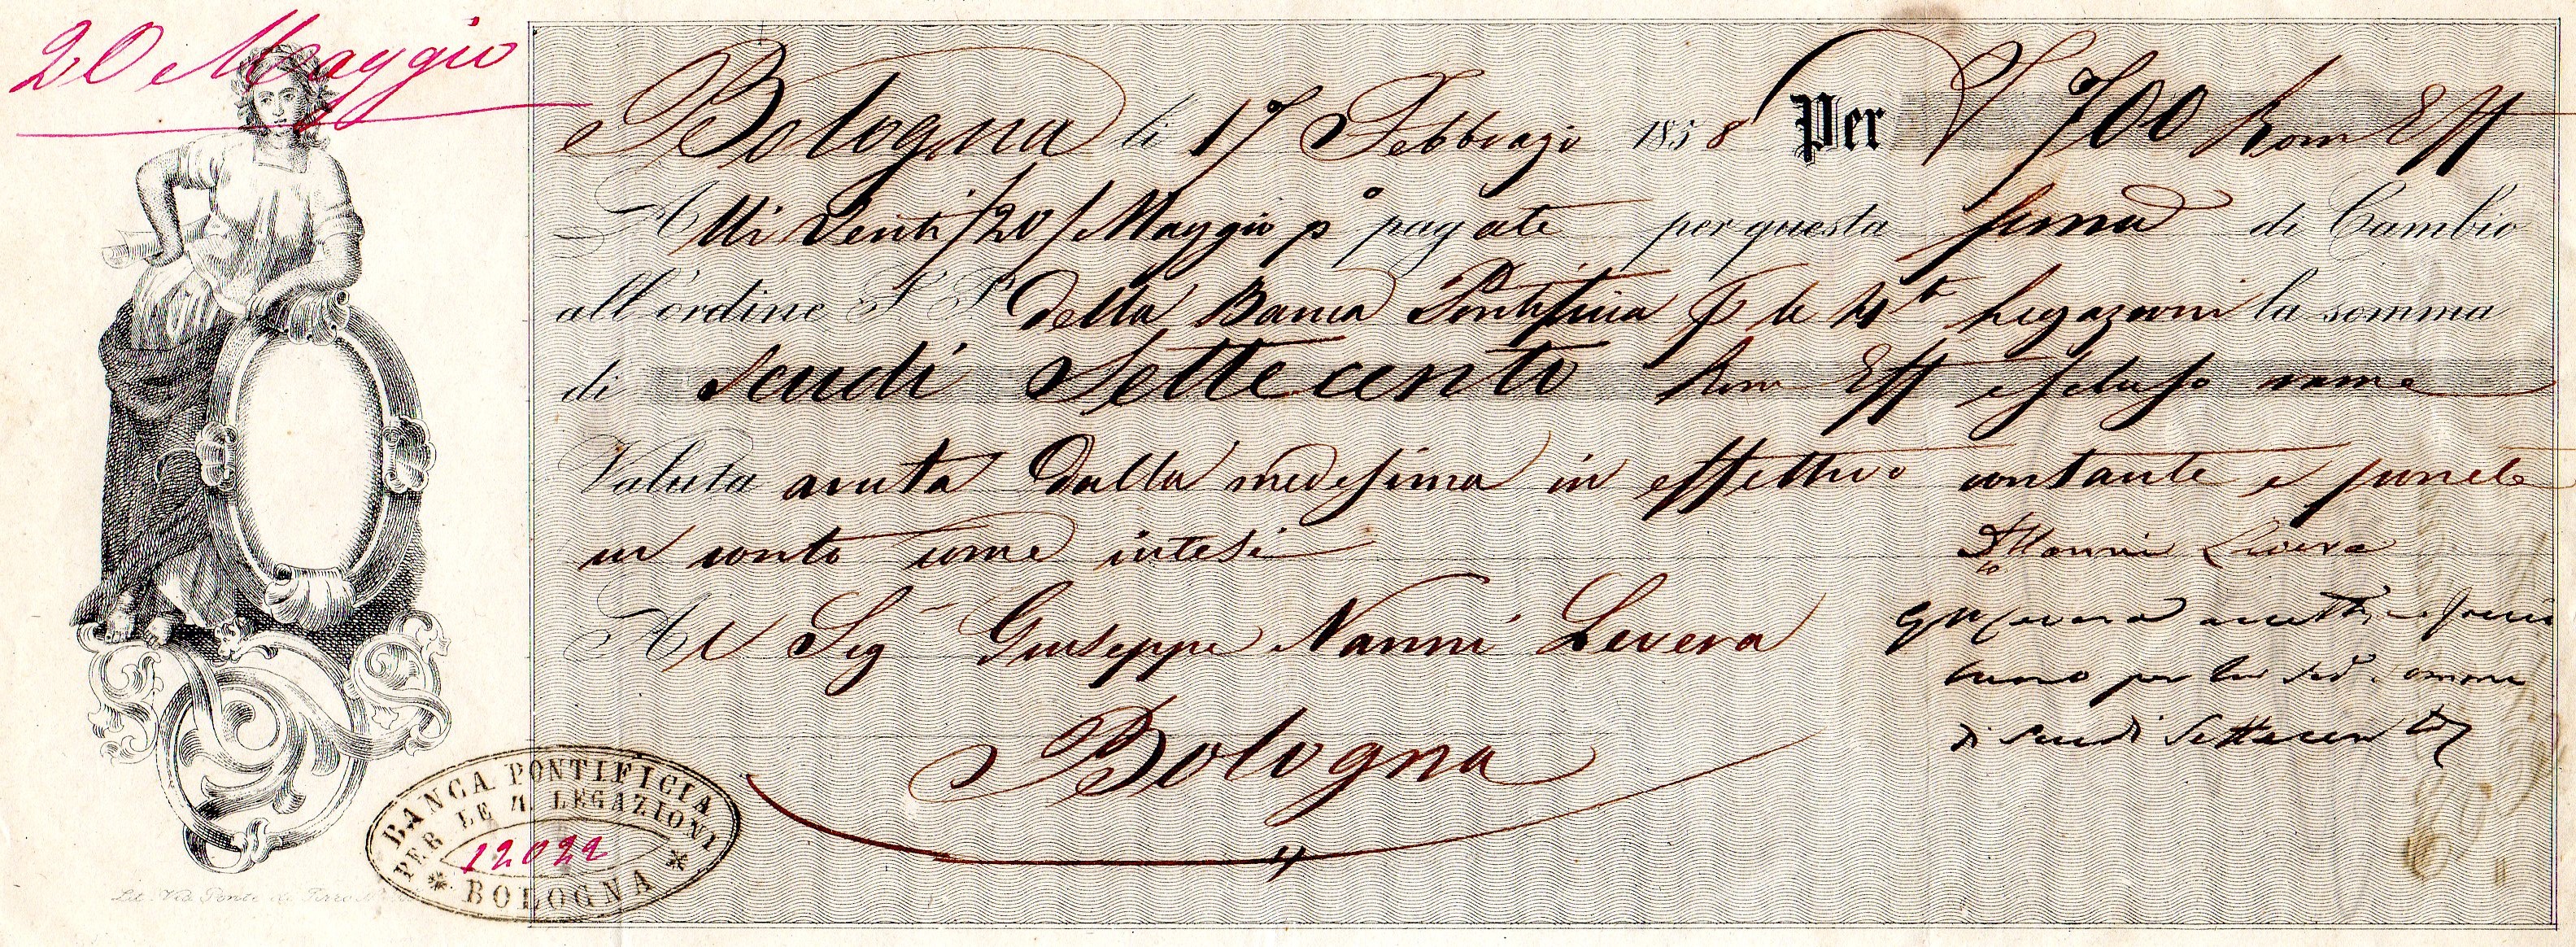 20 Maggio
Bologna li 17 Febbrajo 1858 Per S 700 Rom Eff
Alli Venti /20/ Maggio po pagate per questa prima di Cambio
all'ordine S. P. della Banca Pontificia P le 4 Legazioni la somma
di Scudi Settecento Rom Eff escluso rame
Valuta avuta dalla medesima in effettivo contante e ponete
in conto come intesi
Nanni Levera
Al Sig Giuseppe Nanni Levera
per
Bologna
di Scudi Settecento
BANCA PONTIFICIA
PER LE 4 LEGAZIONI
12022
* BOLOGNA *
Lit. Via Ponte di Ferro